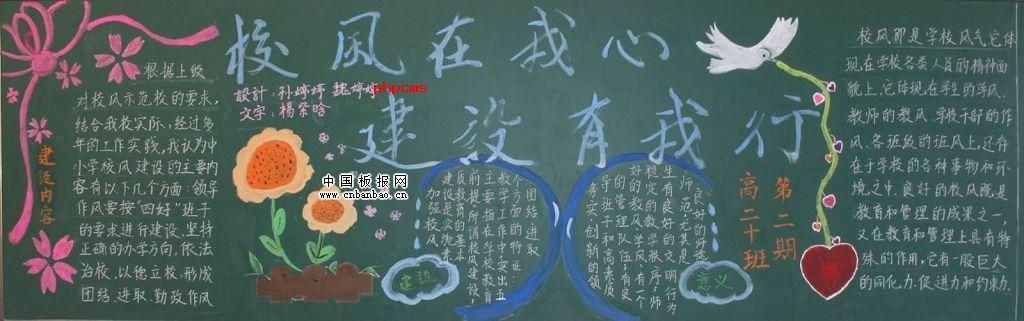 校风在我心
建设有我行
設計:孙婷婷 魏婷婷
文字:楊紫晗
phpcms
中国板报网
www.cnbanbao.cn
建设内容
根据上级
对校风示范校的要求,
结合我校实际,经过多
年的工作实践,我认为中
小学校风建设的主要内
容有以下几个方面:领导
作风要按“四好”班子
的要求进行建设,坚持
正确的办学方向,依法
治校,以德立校,形成
团结、进取、勤政作风
团结进取
个方面的特征:
教学工作中突出五
主要指在学校教育
前我校所讲校风建设,
质教育的基本
建设是实施素
加强校风
建设
良好的师德
师风尤其是
生有良好的文明行为
稳定的教学秩序;师
好的教风、学风;有一个
的管理队伍;有良
守班子和高素质
务实创新的领
意义
第二期
高二十班
校风即是学校风气,它体
现在学校各类人员的精神面
貌上,它体现在学生的学风、
教师的教风、学校干部的作
风、各班级的班风上,还存
在于学校的各种事物和环
境之中,良好的校风既是
教育和管理的成果之一,
又在教育和管理上具有特
殊的作用,它有一股巨大
的同化力、促进力和约束力.